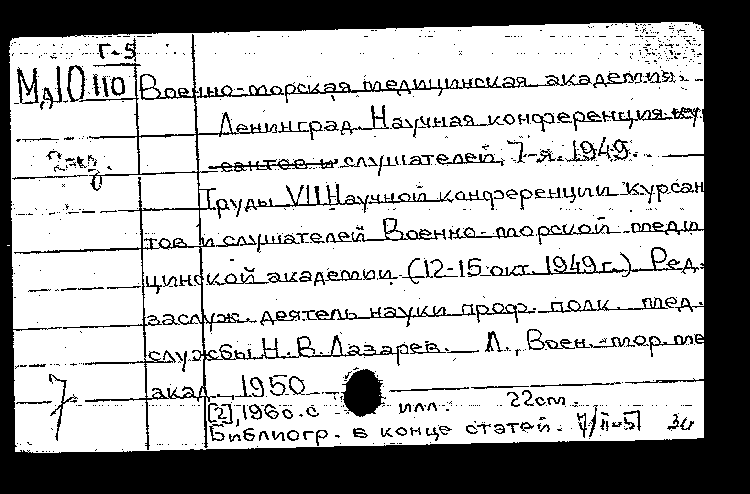 Г-5
Мд10 110 Военно-морская медицинская академия.
Ленинград. Научная конференция кур
сантов и слушателей, 7-я. 1949.
2 экз.
Труды VII Научной конференции курсан
тов и слушателей Военно-морской меди
цинской академии (12-15 окт. 1949 г.) Ред.
заслуж. деятель науки проф. полк. мед.
службы Н. В. Лазарев. Л., Воен.-мор. ме
7 акад., 1950
[2], 196 с. с илл. 22 cm.
Библиогр. в конце статей. 7/II-51